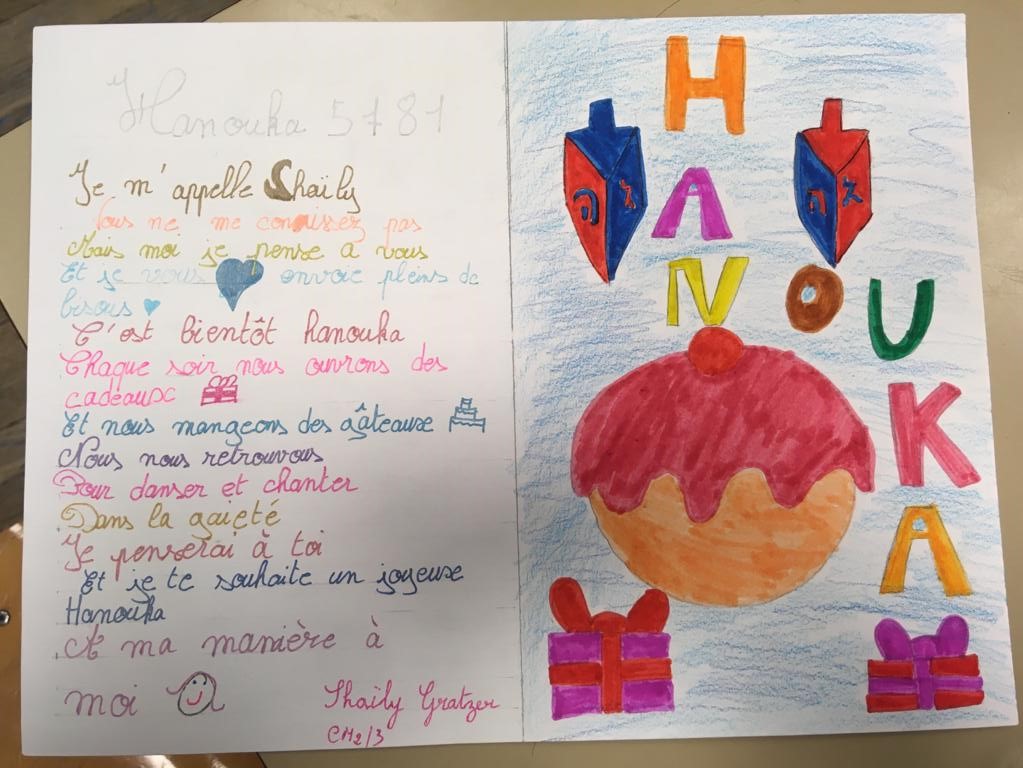 Hanouka 5781
Je m'appelle Shaïly
Vous ne me connaissez pas
Mais moi je pense a vous
Et je vous envoie pleins de
bisous
C'est bientôt hanouka
Chaque soir nous ouvrons des
cadeaux
Et nous mangeons des gâteaux
Nous nous retrouvous
Pour danser et chanter
Dans la gaieté
Je penserai à toi
Et je te souhaite un joyeuse
Hanouka
A ma manière à
moi
Shaily Gratzer
CM2/3
H
A
N
O
U
K
A
ה ג
ה ג